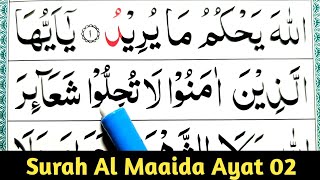 اللهَ يَحْكُمُ مَا يُرِيْدُ ۝١ يٰۤاَيُّهَا
الَّذِيْنَ اٰمَنُوْا لَا تُحِلُّوْا شَعَآئِرَ
Surah Al Maaida Ayat 02